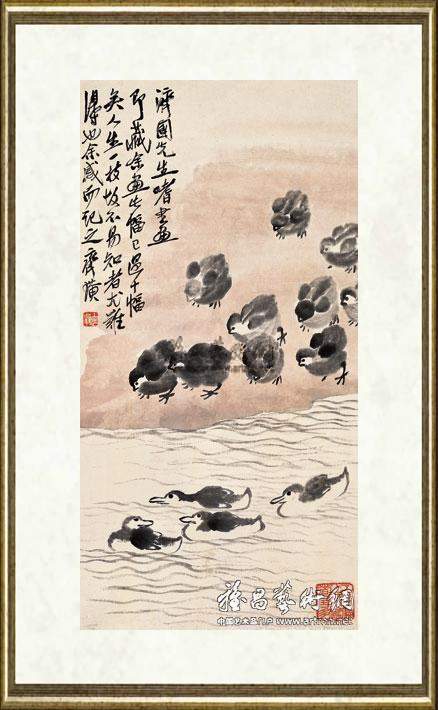 濟國先生嗜書畫
即藏余畫此幅已過十幅
矣人生一技故不易知者尤難
得也余感而記之齊璜
雅昌藝術網
中国艺术品门户 www.artron.net